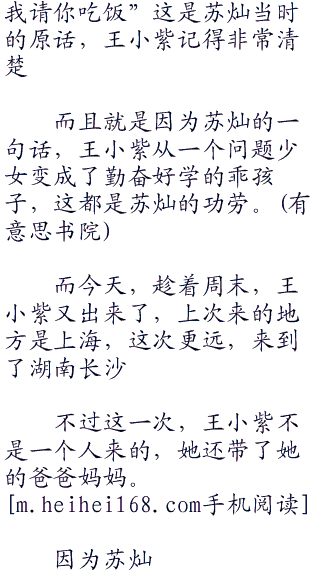 我请你吃饭”这是苏灿当时
的原话，王小紫记得非常清
楚
而且就是因为苏灿的一
句话，王小紫从一个问题少
女变成了勤奋好学的乖孩
子，这都是苏灿的功劳。（有
意思书院）
而今天，趁着周末，王
小紫又出来了，上次来的地
方是上海，这次更远，来到
了湖南长沙
不过这一次，王小紫不
是一个人来的，她还带了她
的爸爸妈妈。
[m.heihei168.com手机阅读]
因为苏灿